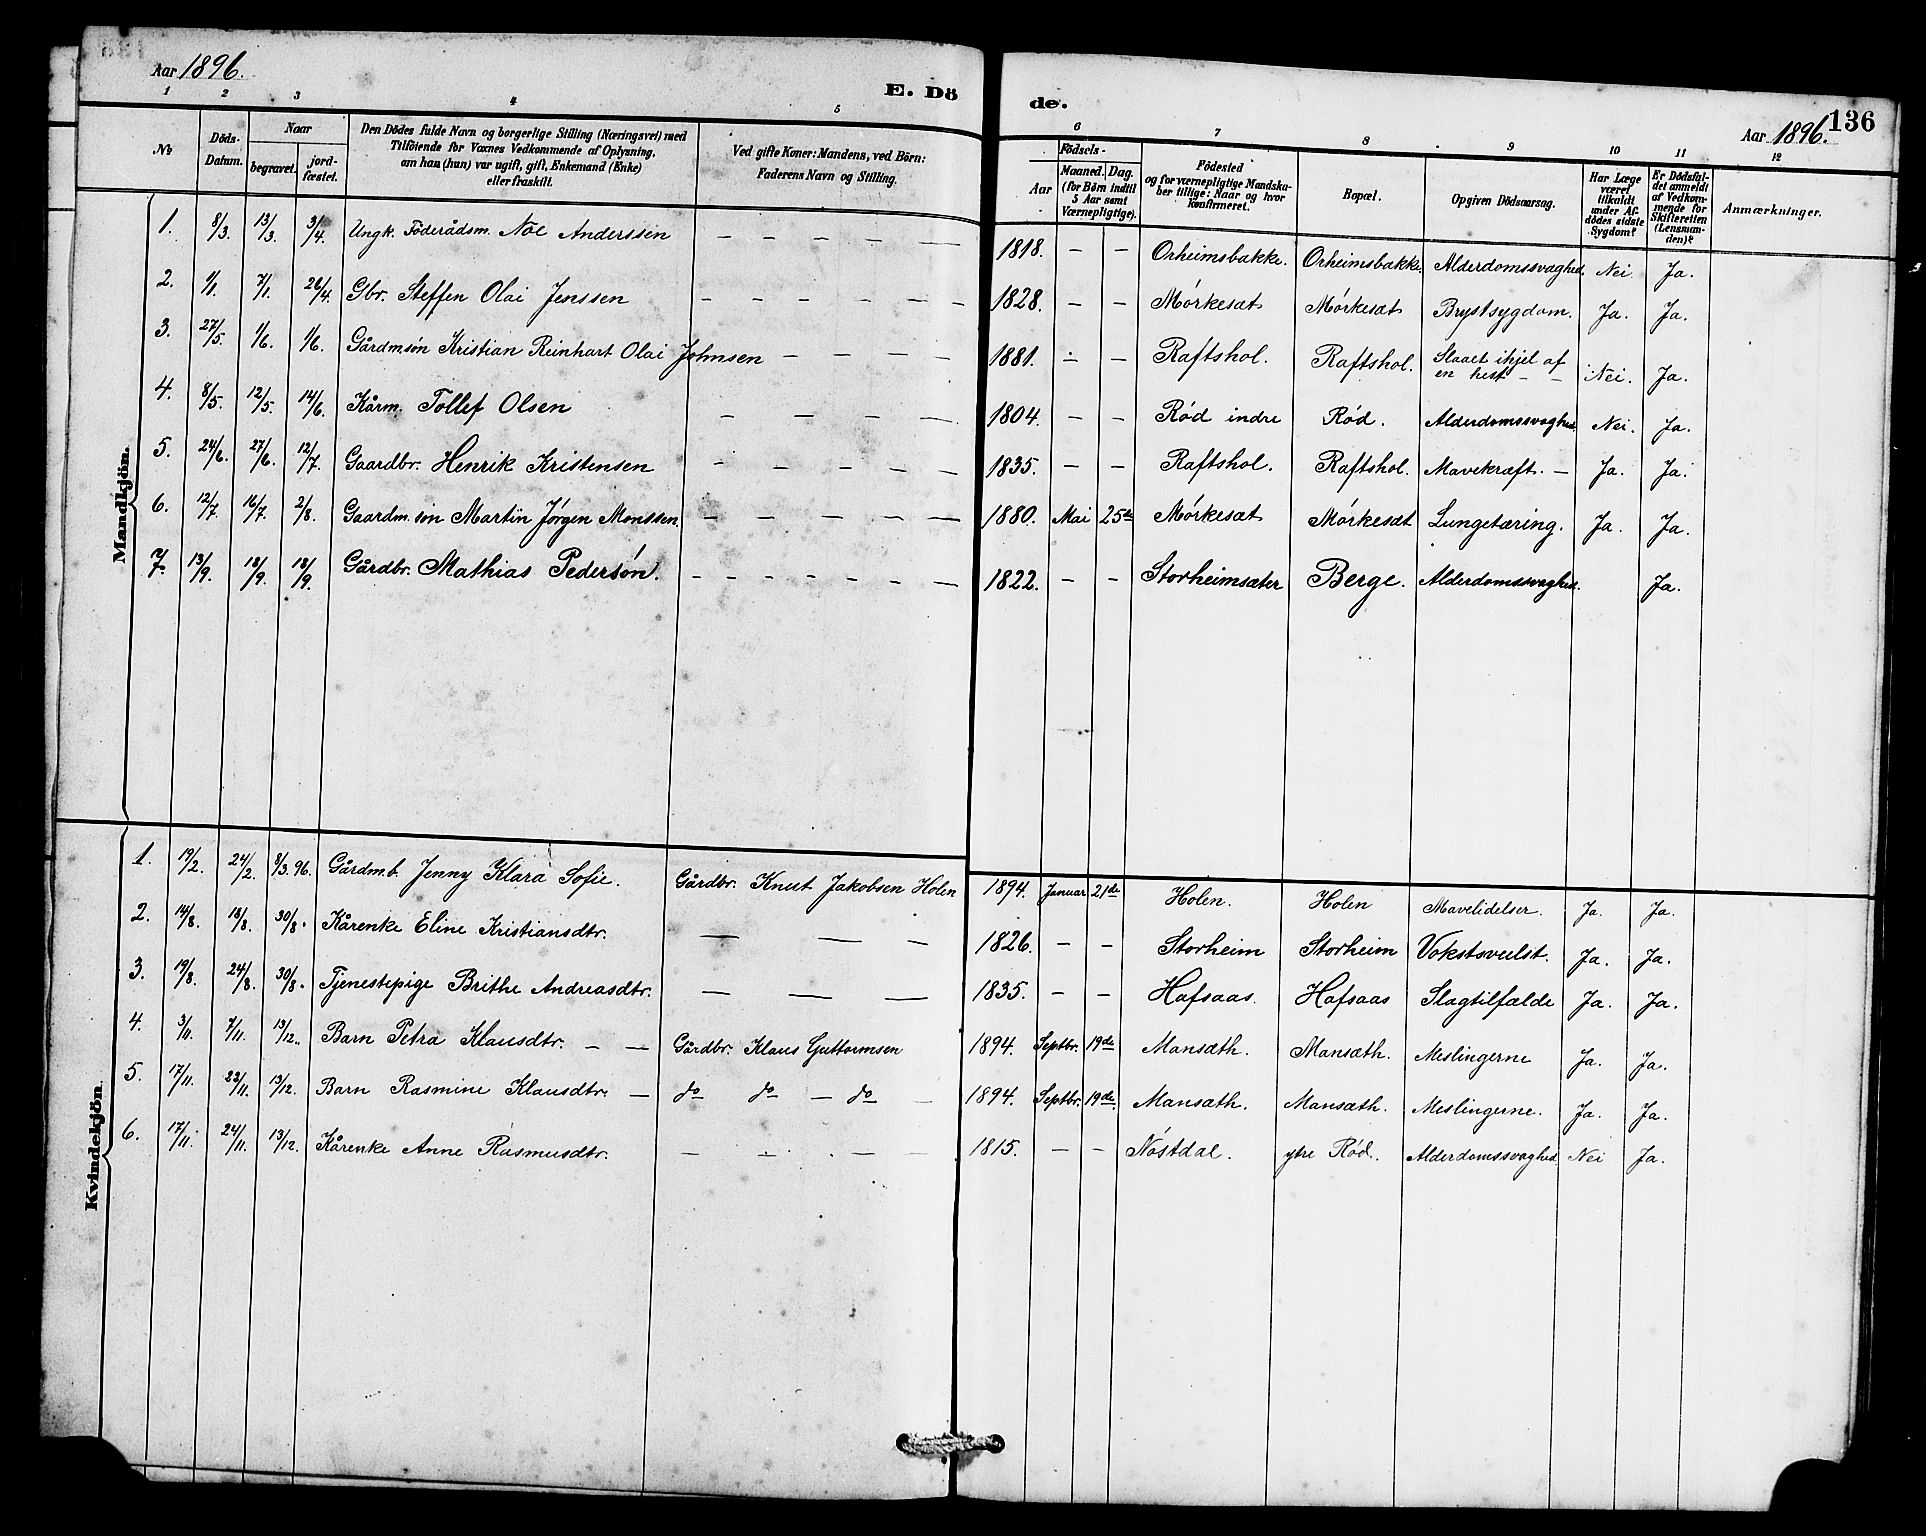 Aar 1896.
E. Dö
de.
Aar 1896.
136
1 2 3 4 5 6 7 8 9 10 11 12
№
Döds-Datum.
Naar
begravet.
jord-fæstet.
Den Dödes fulde Navn og borgerlige Stilling (Næringsvei) med
Tilföiende for Voxnes Vedkommende af Oplysning,
om han (hun) var ugift, gift, Enkemand (Enke)
eller fraskilt.
Ved gifte Koner: Mandens, ved Börn:
Faderens Navn og Stilling.
Födsels-
Aar
Maaned. Dag.
(for Börn indtil
5 Aar samt
Værnepligtige).
Födested
og for værnepligtige Mandska-
ber tillige: Naar og hvor
konfirmeret.
Bopæl.
Opgiven Dödsaarsag.
Har Læge
været
tilkaldt
under Af-
dödes sidste
Sygdom?
Er Dödsfal-
det anmeldt
af Vedkom-
mende for
Skifteretten
(Lensman-
den)?
Anmærkninger.
Mandkjön.
1. 8/3. 13/3. 3/4. Ungk. Föderådsm. Noe Anderssen — — — — — 1818. — — Orheimsbakke. Orheimsbakke. Alderdomssvaghed. Nei. Ja.
2. 1/1. 7/1. 26/4. Gbr. Steffen Olai Jenssen — — — — — — 1828. — — Mórkesæt Mórkesæt Brystsygdom. Ja. Ja.
3. 27/5. 1/6. 1/6. Gårdm.søn Kristian Reinhart Olai Johnsen — — — — 1881. — — Raftshol. Raftshol. Slaaet ihjel af en hest — — Nei. Ja.
4. 8/5. 12/5. 14/6. Kårm. Tollef Olsen — — — — 1804. — — Rød indre Ród. Alderdomssvaghed. Nei. Ja.
5. 24/6. 27/6. 12/7. Gaardbr. Henrik Kristensen — — — — — 1835. — — Raftshol. Raftshol. Mavekræft. — Ja. Ja.
6. 12/7. 16/7. 2/8. Gaardm. søn Martin Jórgen Monssen. — — — — — 1880. Mai 25de Mórkesæt Mórkesæt Lungetæring. Ja. Ja.
7. 13/9. 18/9. 18/9. Gårdbr. Mathias Pedersón. — — — — — — — 1822. — — Storheimsæter Berge. Alderdomssvaghed. Ja.
Kvindekjön.
1. 19/2. 24/2. 8/3. 96. Gårdm.b. Jenny Klara Sofie. Gårdbr. Knut Jakobsen Holen 1894. Januar 21de Holen. Holen Mavelidelser. Ja. Ja.
2. 14/8. 18/8. 30/8. Kårenke Eline Kristiansdtr. — — — 1826. — — Storheim Storheim Vokstsvulst. Ja. Ja.
3. 19/8. 24/8. 30/8. Tjenestepige Brithe Andreasdtr. — — — 1835. — — Hafsaas. Hafsaas Slagtilfælde Ja. Ja.
4. 3/11. 7/11. 13/12. Barn Petra Klausdtr. — — Gårdbr. Klaus Guttormsen 1894. Septbr. 19de Mansæth. Mansæth. Meslingerne Ja. Ja.
5. 17/11. 23/11. 13/12. Barn Rasmine Klausdtr. — do do — do — 1894. Septbr. 19de. Mansæth. Mansæth. Meslingerne. Ja. Ja.
6. 17/11. 24/11. 13/12. Kårenke Anne Rasmusdtr. — — — — 1815. — — Nóstdal. ytre Rød. Alderdomssvaghed. Nei Ja.